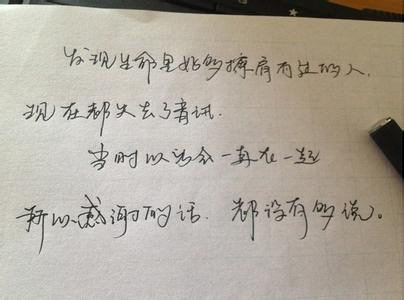 发现生命里好多擦肩而过的人.
现在都失去了音讯.
当时以为会一直在一起
所以感谢的话. 都没有多说。